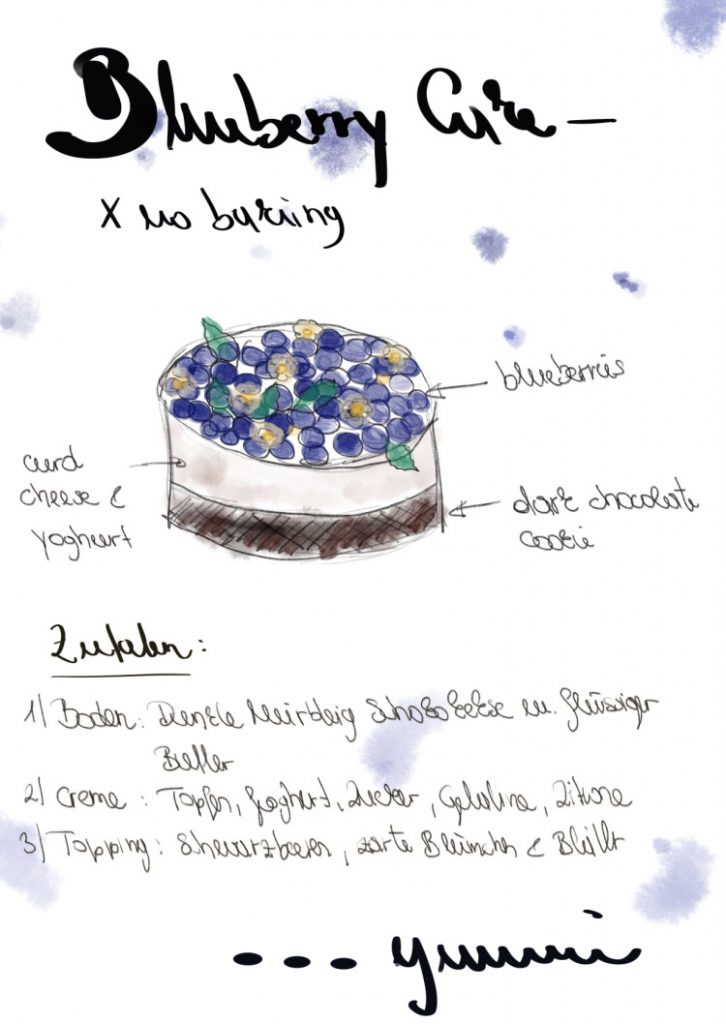 Blueberry Cake –
x no baking
blueberries
curd
cheese &
yoghurt
dark chocolate
cookie
Zutaten:
1) Boden: Dunkle Mürbteig Schokokekse m. flüssiger
Butter
2) Creme: Topfen, Joghurt, Zucker, Gelatine, Zitrone
3) Topping: Schwarzbeeren, zarte Blümchen & Blätter
... yummi